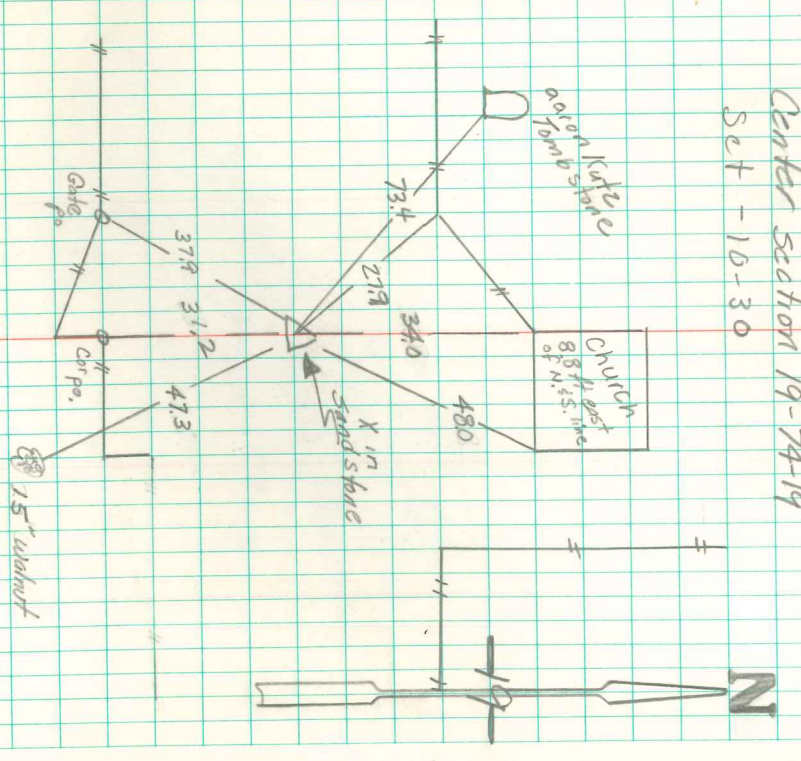 Center Section 19-74-19
Set - 10-30
N
19
aaron Kutz
Tombstone
Church
8.8 ft east
of N. & S. line
73.4
27.9
34.0
48.0
37.9
31.2
47.3
X in
Sandstone
Gate
Po.
Cor po.
15" walnut